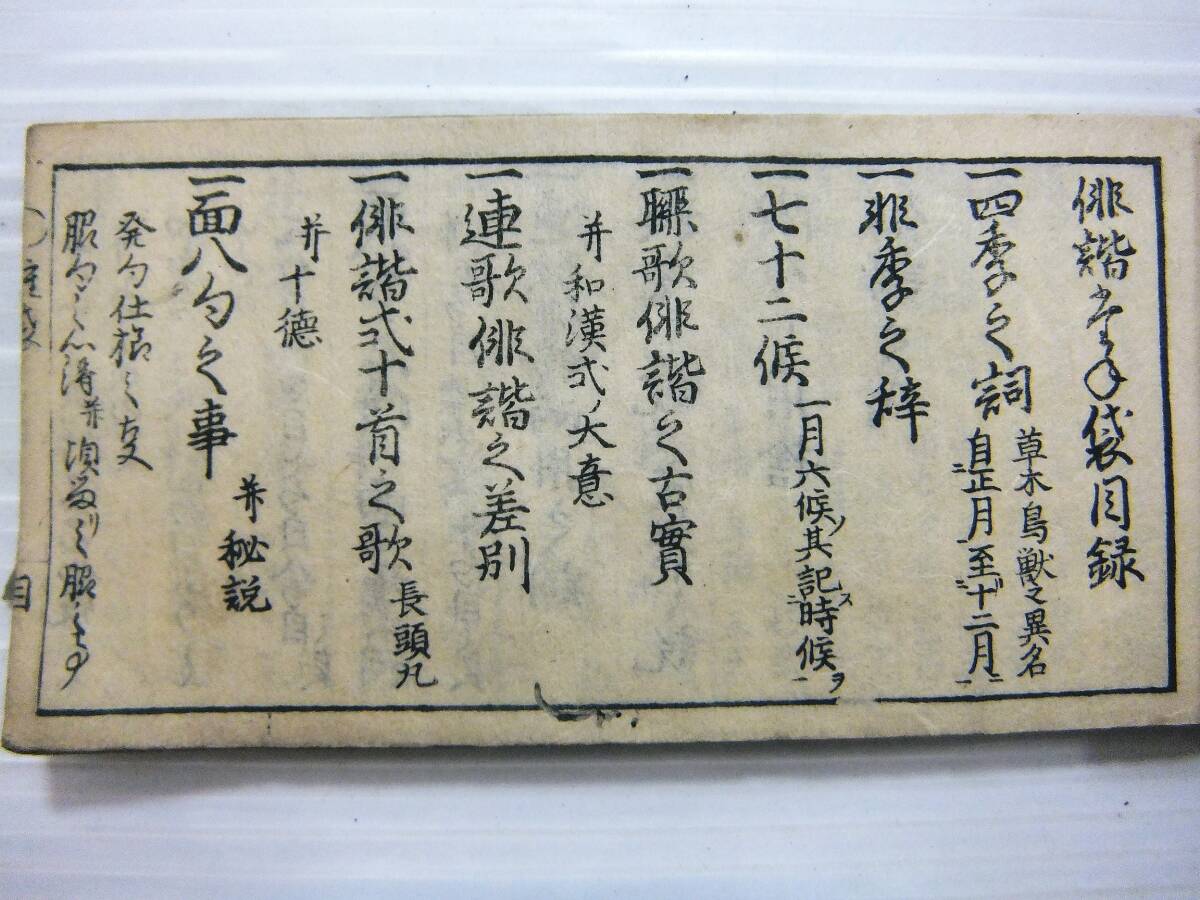 俳諧手袋目録
一四季之詞
草木鳥獣之異名
自正月至十二月
一非季之辞
一七十二候
一月六候ノ其記時候
一聯歌俳諧之古實
并和漢式ノ大意
一連歌俳諧之差別
一俳諧式十首之歌
長頭丸
并十徳
一面八句之事
并秘説
発句仕様之事
脇句之心得并
目